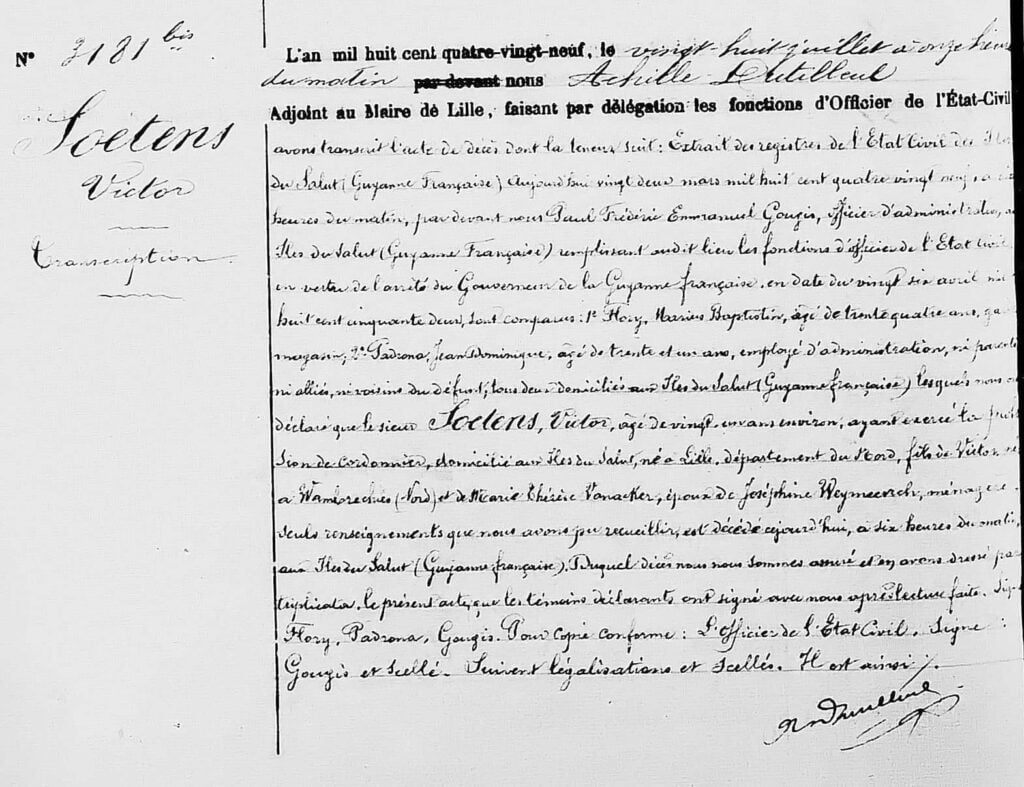 N° 3181 bis
Soetens
Victor
Transcription
L'an mil huit cent quatre-vingt-neuf, le vingt huit juillet à onze heures
du matin par devant nous Achille Dutilleul
Adjoint au Maire de Lille, faisant par délégation les fonctions d'Officier de l'État-Civil
avons transcrit l'acte de décès dont la teneur suit : Extrait des registres de l'Etat Civil des Iles
du Salut (Guyanne Française) Aujourd'hui vingt deux mars mil huit cent quatre vingt neuf, à
heures du matin, par devant nous Paul Frédéric Emmanuel Gougis, officier d'administration,
Iles du Salut (Guyanne Française) remplissant audit lieu les fonctions d'officier de l'Etat Civil
en vertu de l'arrêté du Gouverneur de la Guyanne française en date du vingt six avril mil
huit cent cinquante deux, sont comparus : 1° Flory, Marius Baptistin, âgé de trente quatre ans,
magasin, 2° Padrona, Jean Dominique, âgé de trente et un ans, employé d'administration, ni parents
ni alliés, ni voisins du défunt, tous deux domiciliés aux Iles du Salut (Guyanne française) lesquels nous
déclaré que le sieur Soetens, Victor, âgé de vingt un ans environ, ayant exercé la
sion de cordonnier, domicilié aux Iles du Salut, né à Lille, département du Nord, fils de Victor, né
à Wambrechies (Nord) et de Marie Thérèse Vanacker, époux de Joséphine Weymeersch, ménagère
seuls renseignements que nous avons pu recueillir, est décédé cejourd'hui, à six heures du matin,
aux Iles du Salut (Guyanne française). Duquel décès nous nous sommes assuré et en avons dressé
triplicata, le présent acte, que les témoins déclarants ont signé avec nous après lecture faite.
Flory, Padrona, Gougis. Pour copie conforme : L'officier de l'Etat Civil. Signé :
Gougis et scellé. Suivent légalisations et scellés. Il est ainsi.